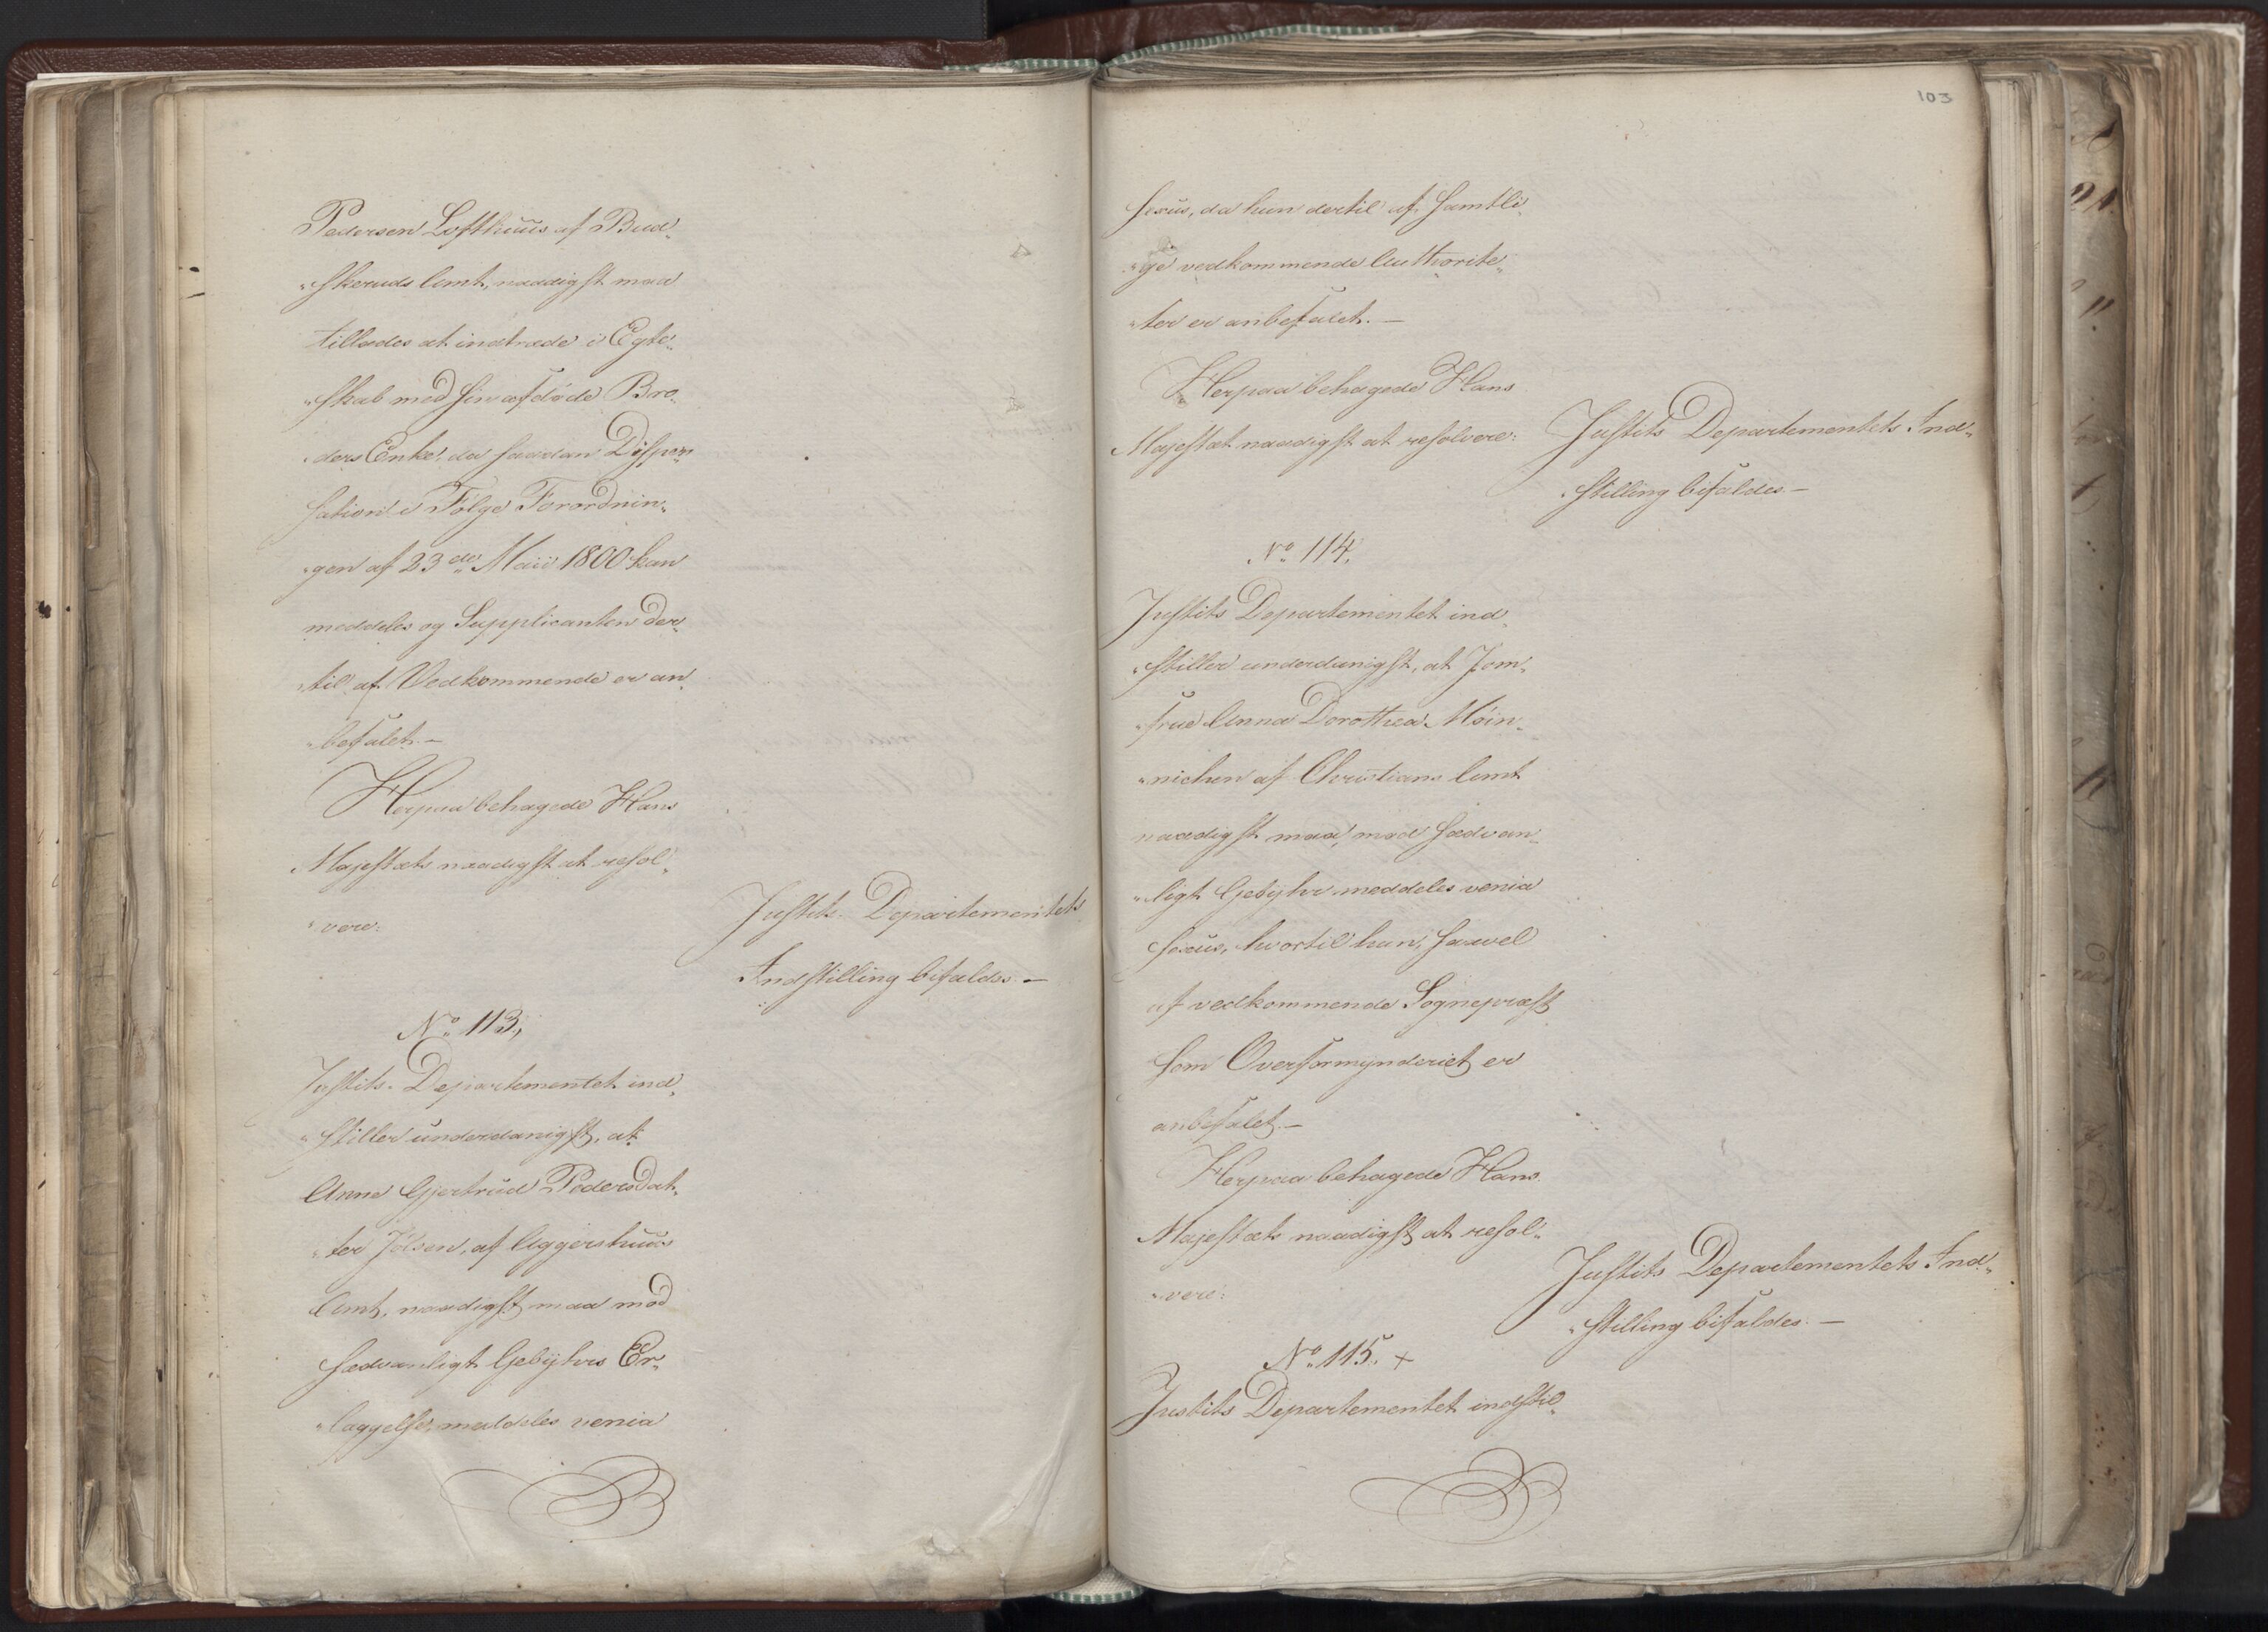 Pedersen Lofthuus af Bud„
„skeruds Amt, naadigst maa
tillades at indtræde i Egte„
„skab med sin afdøde Bro„
„ders Enke, da saadan Dispen„
sation i Følge Forordnin„
„gen af 23de Maii 1800 kan
meddeles og Supplicanten der„
„til af Vedkommende er an„
„befalet. —
Herpaa behagede Hans
Majestæts naadigst at resol„
„vere:
Justits-Departementets
Indstilling bifaldes. —
No 113,
Justits-Departementet ind„
„stiller underdanigst, at
Anne Gjertrud Pedersdat„
„ter Jølsen, af Aggershuus
Amt, naadigst maa mod
sædvanligt Gebyhrs Er„
„læggelse, meddeles venia
103
sexus, da hun dertil af samtli„
„ge vedkommende Authorite„
„ter er anbefalet. —
Herpaa behagede Hans
Majestæt naadigst at resolvere:
Justits Departementets Ind„
„stilling bifaldes —
No 114.
Justits Departementet ind„
„stiller underdanigst, at Jom„
„frue Anna Dorothea Møin„
„nichen af Christians Amt
naadigst maa, mod sædvan„
„ligt Gebyhr meddeles venia
sexus, hvortil hun, saavel
af vedkommende Sognepræst
som Overformynderiet er
anbefalet. —
Herpaa behagede Hans
Majestæts naadigst at resol„
„vere:
Justits Departementets Ind„
„stilling bifaldes. —
No 115. +
Justits Departementet indstil„